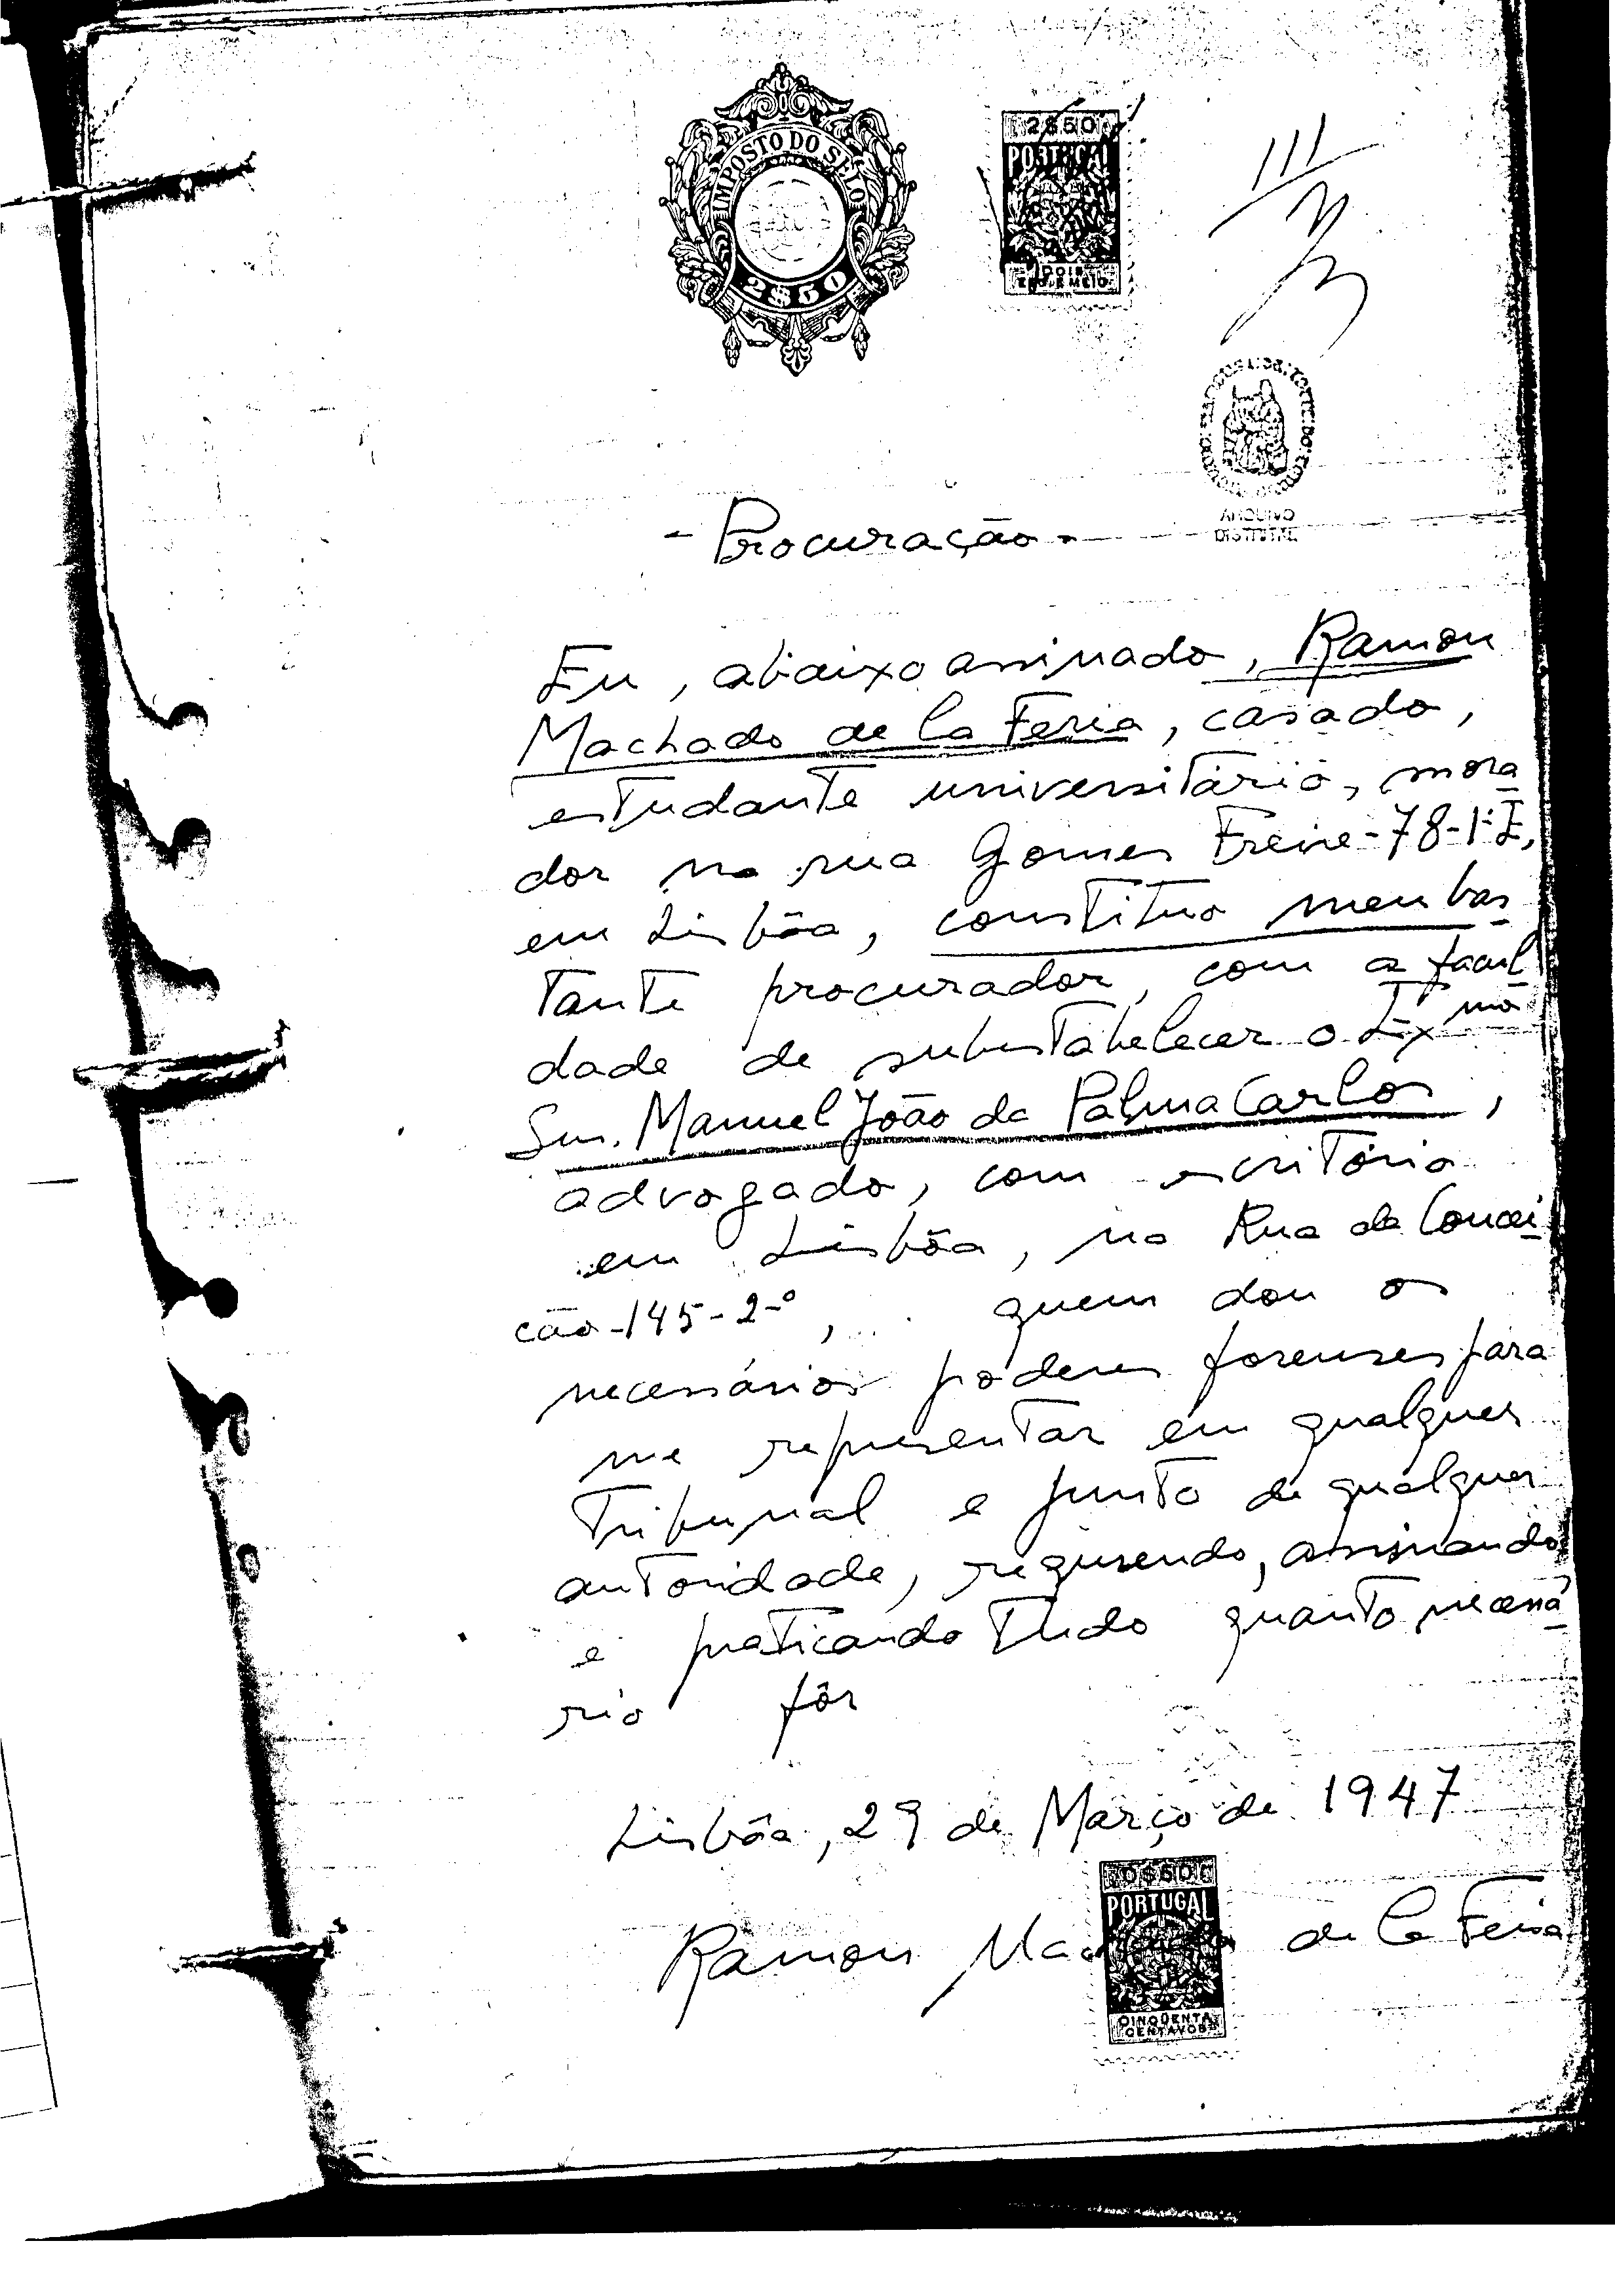 IMPOSTO DO SELO
2$50
2$50
PORTUGAL
DOIS
ESC. E MEIO
111
ARQUIVO
DISTRITAL
- Procuração -
Eu, abaixo assinado, Ramon
Machado de la Feria, casado,
estudante universitário, mora
dor na rua Gomes Freire-78-1º E,
em Lisbôa, constituo meu bas
tante procurador, com a facul
dade de substabelecer o Exmo
Snr. Manuel João da Palma Carlos,
advogado, com escritório
em Lisbôa, na Rua da Concei
ção-145-2-º, quem dou os
necessários poderes forenses para
me representar em qualquer
Tribunal e junto de qualquer
autoridade, requerendo, assinando
e praticando tudo quanto necessá
rio fôr
Lisbôa, 29 de Março de 1947
0$50
PORTUGAL
CINQÜENTA
CENTAVOS
Ramon Machado de la Feria